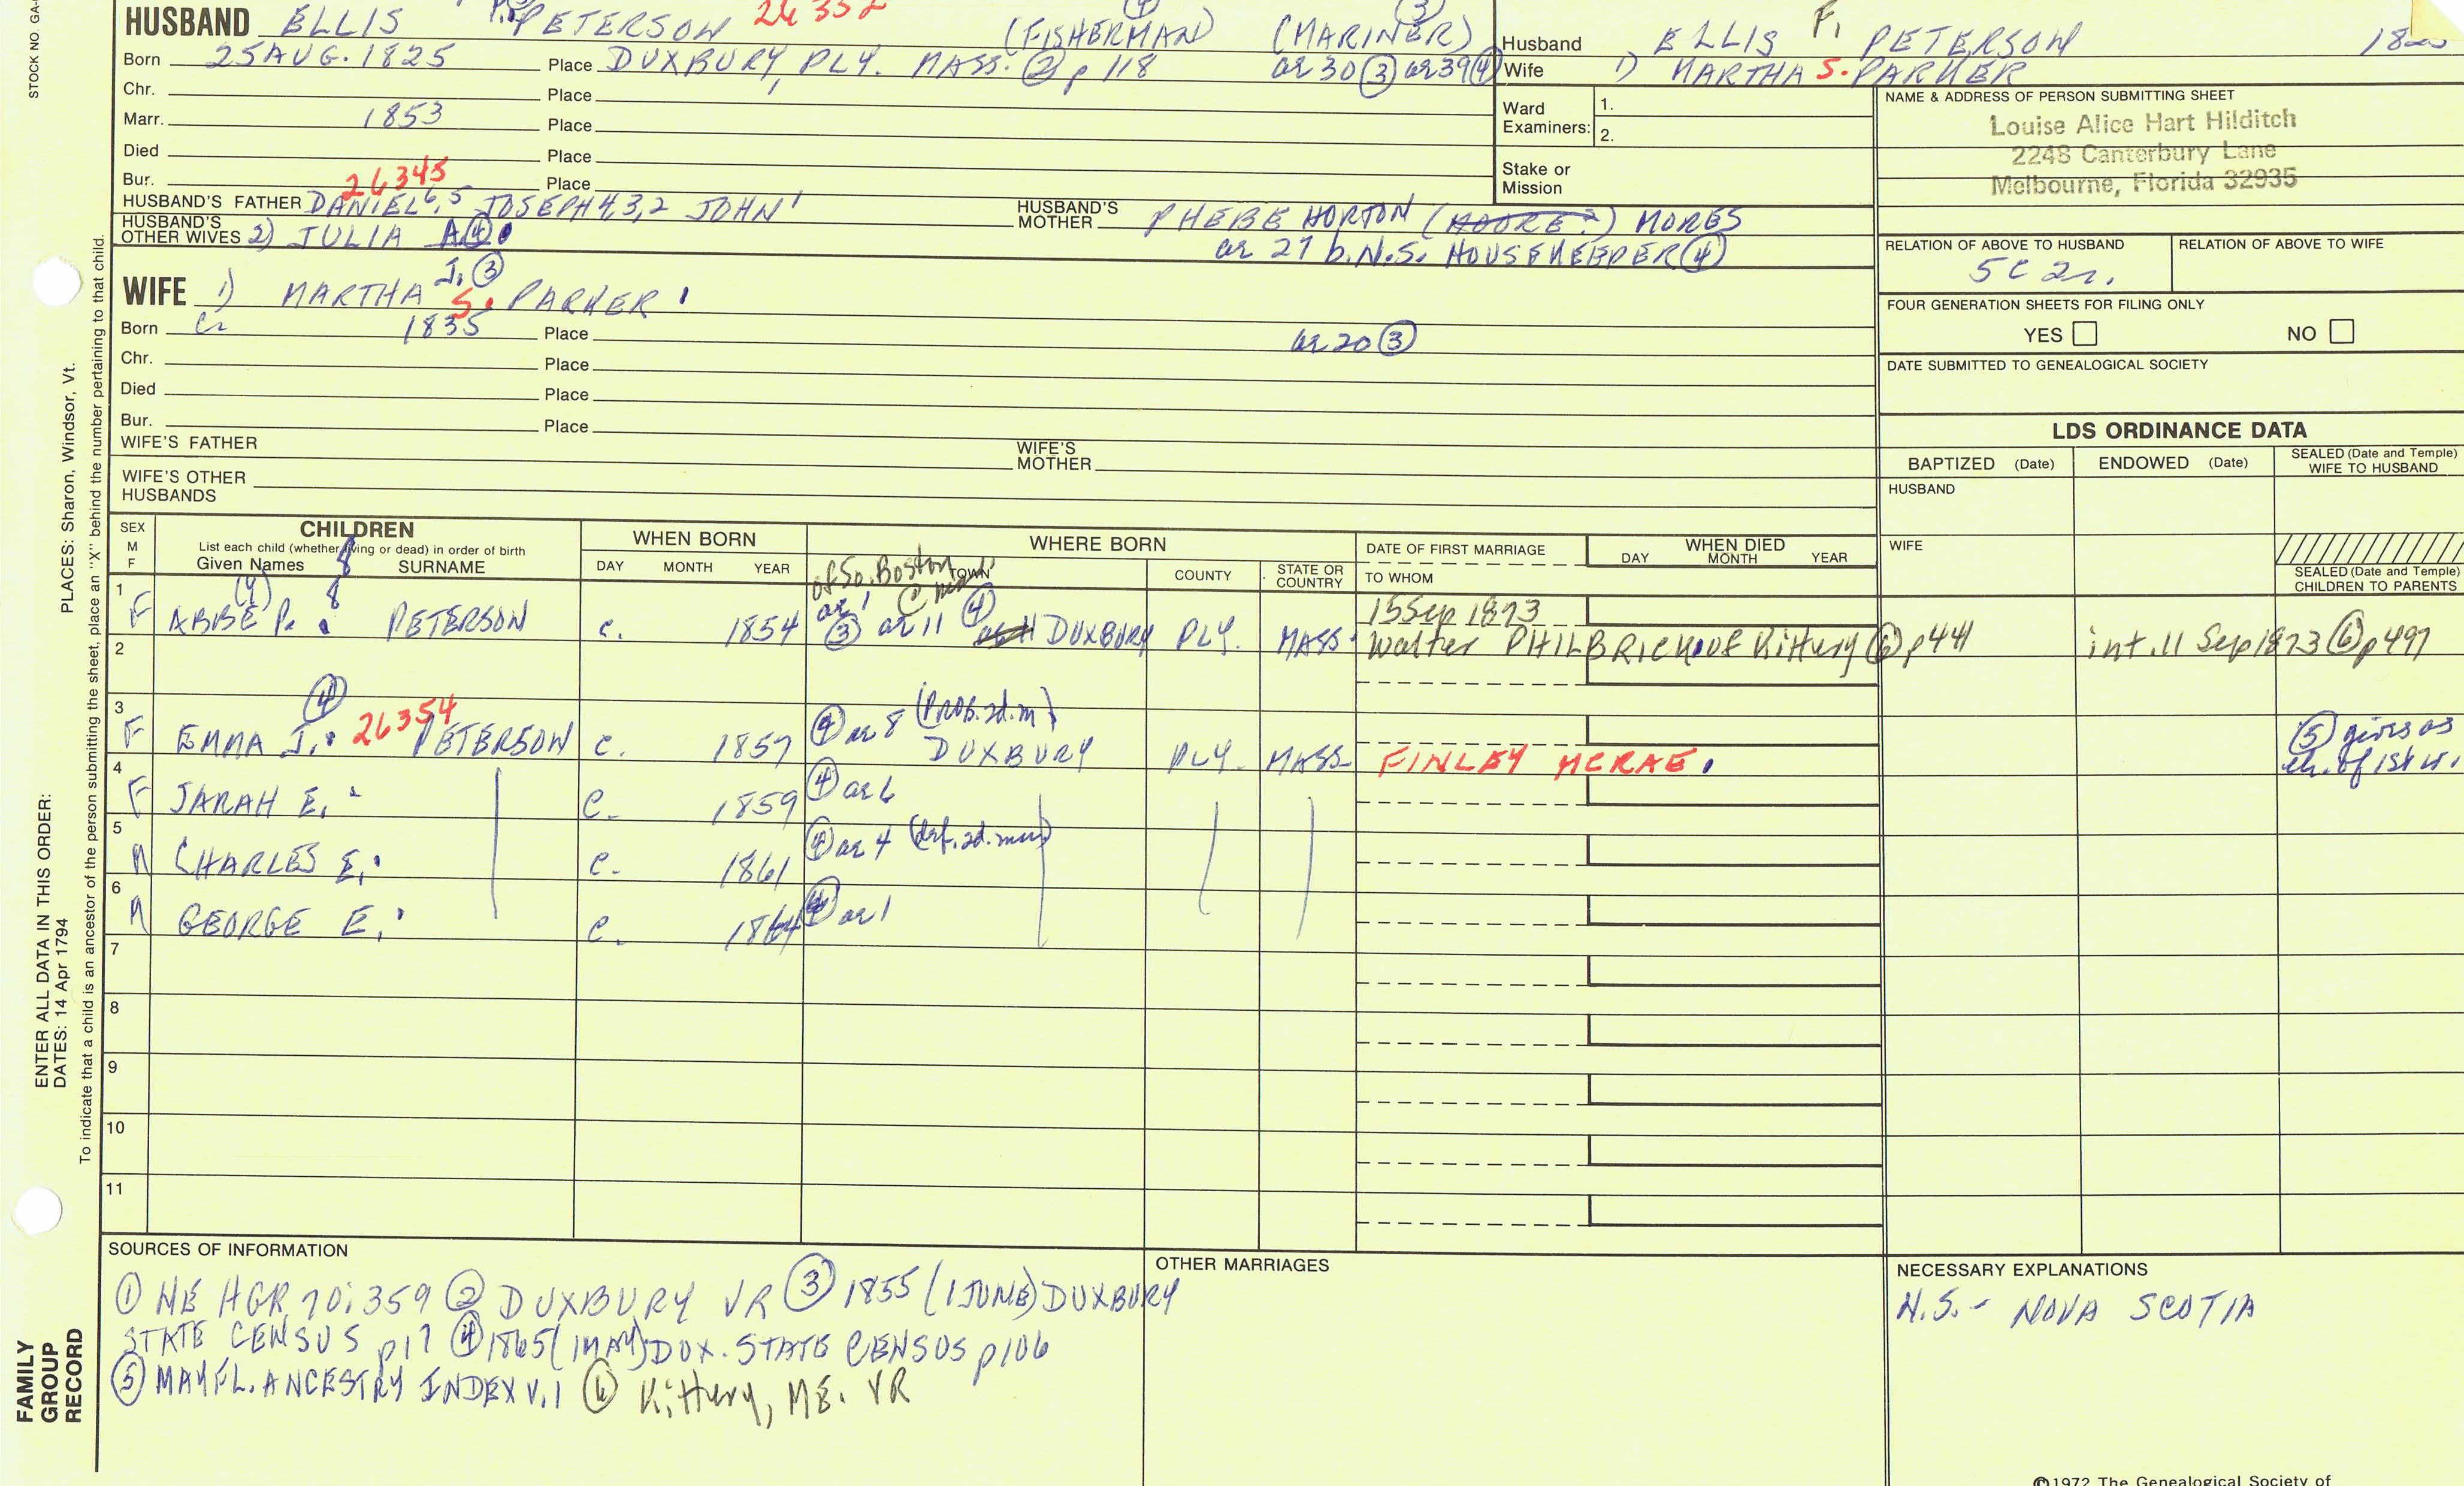 STOCK NO. GA-
HUSBAND ELLIS PETERSON 26352 (FISHERMAN) ④ (MARINER) ③
Born 25 AUG. 1825 Place DUXBURY, PLY. MASS. ② p 118 ae 30 ③ ae 39 ④
Chr. Place
Marr. 1853 Place
Died Place
Bur. Place
26345
HUSBAND'S FATHER DANIEL 6, 5 JOSEPH 4,3,2 JOHN 1 HUSBAND'S MOTHER PHEBE HORTON (MOORE?) MORES
HUSBAND'S OTHER WIVES 2) JULIA A ④ ae 27 b. N.S. HOUSEKEEPER ④
J. ③
WIFE 1) MARTHA S. PARKER
Born c 1835 Place ae 20 ③
Chr. Place
Died Place
Bur. Place
WIFE'S FATHER WIFE'S MOTHER
WIFE'S OTHER HUSBANDS
Husband ELLIS F. PETERSON
Wife 1) MARTHA S. PARKER
Ward Examiners: 1.
2.
Stake or Mission
NAME & ADDRESS OF PERSON SUBMITTING SHEET
Louise Alice Hart Hilditch
2248 Canterbury Lane
Melbourne, Florida 32935
RELATION OF ABOVE TO HUSBAND RELATION OF ABOVE TO WIFE
5C 2r.
FOUR GENERATION SHEETS FOR FILING ONLY
YES NO
DATE SUBMITTED TO GENEALOGICAL SOCIETY
LDS ORDINANCE DATA
BAPTIZED (Date) ENDOWED (Date) SEALED (Date and Temple) WIFE TO HUSBAND
HUSBAND
WIFE
SEALED (Date and Temple) CHILDREN TO PARENTS
SEX M F
CHILDREN
List each child (whether living or dead) in order of birth
Given Names SURNAME
WHEN BORN
DAY MONTH YEAR
WHERE BORN
TOWN COUNTY STATE OR COUNTRY
DATE OF FIRST MARRIAGE
TO WHOM
WHEN DIED
DAY MONTH YEAR
of So. Boston
1 F ABBE (Y) P. PETERSON c. 1854 ae 1 ③ ae 11 ④ DUXBURY PLY. MASS. 15 Sep 1873
Walter PHILBRICK of Kittery ⑥ p441 int. 11 Sep 1873 ⑥ p497
2
3 F EMMA J. ④ 26354 PETERSON c. 1857 ④ ae 8 (PROB. 2d. m) DUXBURY PLY. MASS FINLEY MCRAE. ⑤ gives as ch. of 1st w.
4 F SARAH E. c. 1859 ④ ae 6
5 M CHARLES E. c. 1861 ④ ae 4 (def. 2d. mar)
6 M GEORGE E. c. 1864 ④ ae 1
7
8
9
10
11
SOURCES OF INFORMATION
① NE HGR 70:359 ② DUXBURY VR ③ 1855 (1 JUNE) DUXBURY
STATE CENSUS p17 ④ 1865 (1 MAY) DUX. STATE CENSUS p106
⑤ MAYFL. ANCESTRY INDEX V.1 ⑥ Kittery, ME. VR
OTHER MARRIAGES
NECESSARY EXPLANATIONS
N.S. - NOVA SCOTIA
PLACES: Sharon, Windsor, Vt.
ENTER ALL DATA IN THIS ORDER:
DATES: 14 Apr 1794
To indicate that a child is an ancestor of the person submitting the sheet, place an "X" behind the number pertaining to that child.
FAMILY
GROUP
RECORD
©1972 The Genealogical Society of